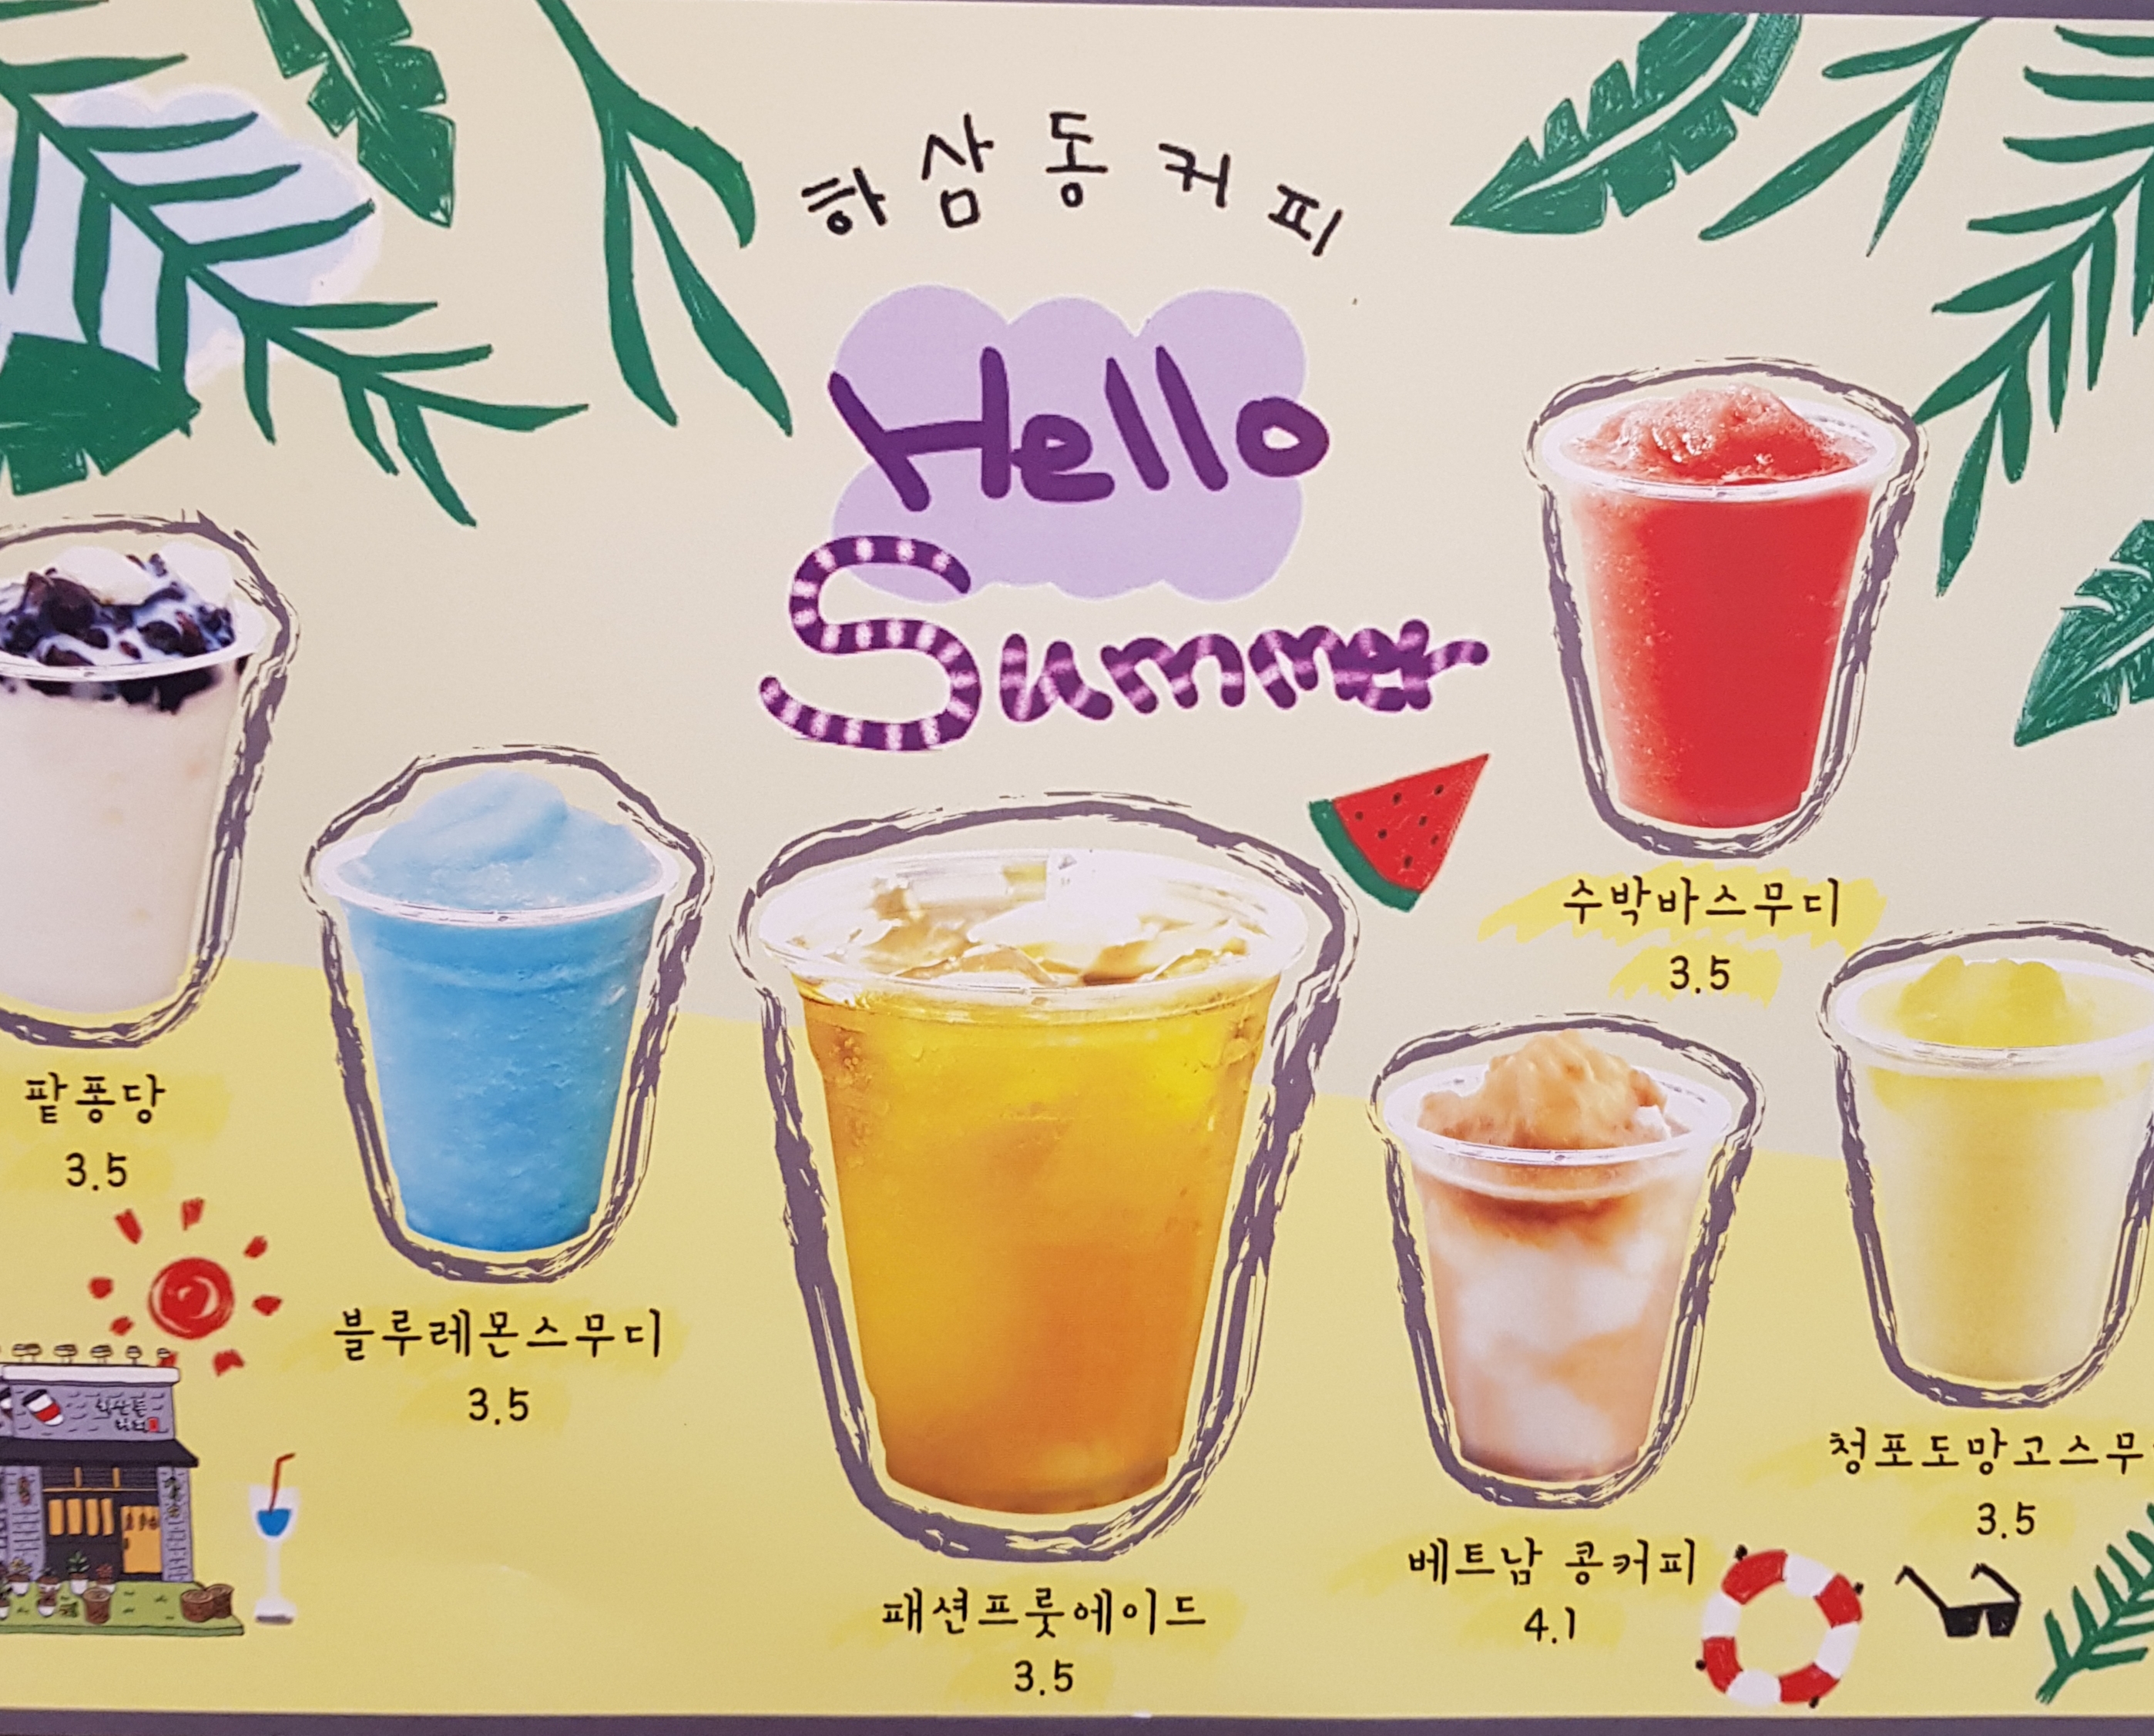 하삼동커피
Hello
Summer
수박바스무디
3.5
팥퐁당
3.5
블루레몬스무디
3.5
패션프룻에이드
3.5
베트남 콩커피
4.1
청포도망고스무
3.5
하삼동
커피